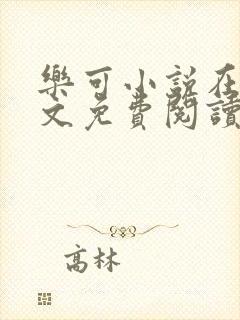 樂可小說在
文免費閱讀
高林